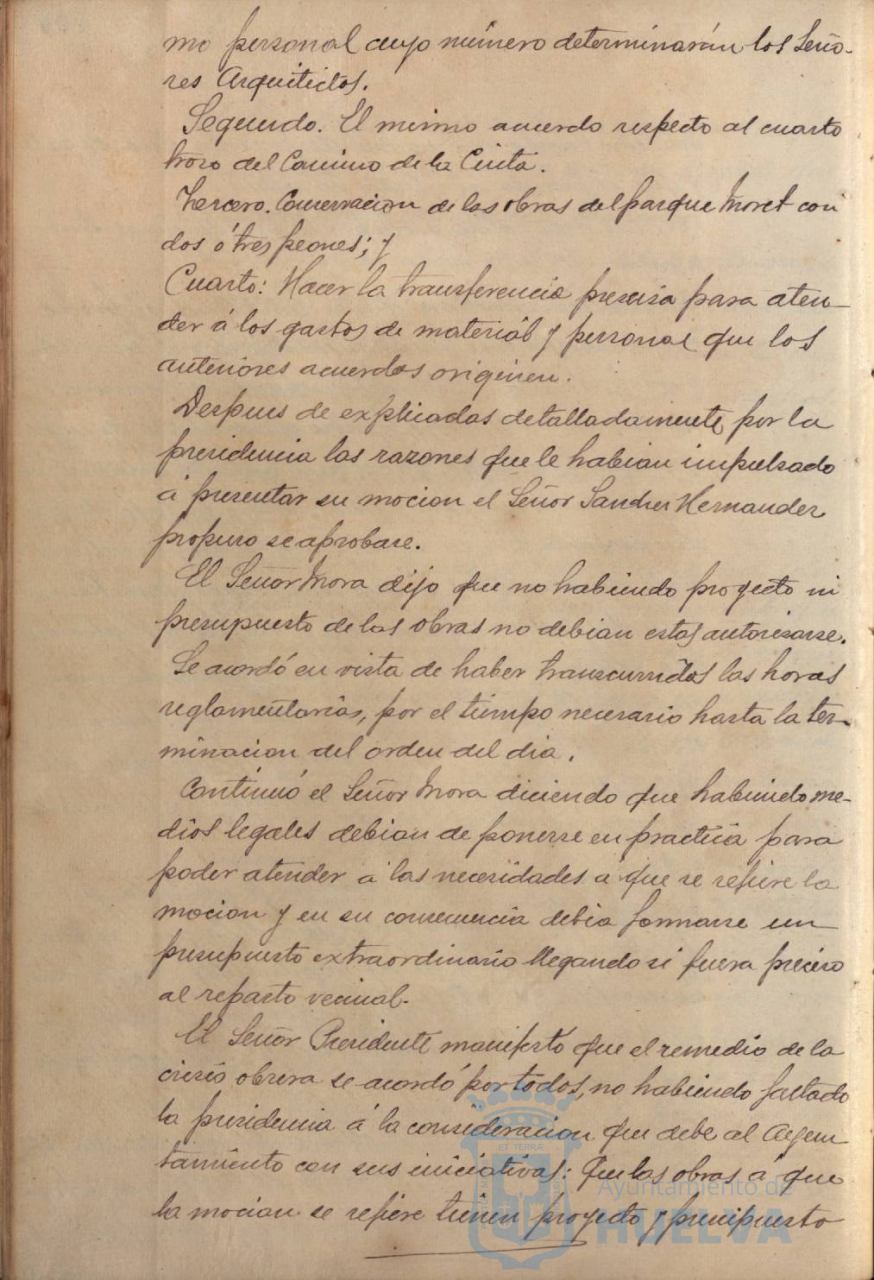 mo personal cuyo número determinarán los Seño-
res Arquitectos.
Segundo. El mismo acuerdo respecto al cuarto
trozo del Camino de la Cinta.
Tercero. Conservacion de las obras del parque Moret con
dos ó tres peones; y
Cuarto: Hacer la transferencia precisa para aten-
der á los gastos de material y personal que los
anteriores acuerdos originen.
Despues de explicadas detalladamente, por la
presidencia las razones que le habian impulsado
á presentar su mocion el Señor Sanchez Hernandez
propuso se aprobase.
El Señor Mora dijo que no habiendo proyecto ni
presupuesto de las obras no debian estas autorizarse.
Se acordó en vista de haber transcurridos las horas
reglamentarias, por el tiempo necesario hasta la ter-
minacion del orden del dia.
Continuó el Señor Mora diciendo que habiendo me-
dios legales debian de ponerse en practica para
poder atender á las necesidades a que se refiere la
mocion y en su consecuencia debia formarse un
presupuesto extraordinario llegando si fuera preciso
al reparto vecinal.
El Señor Presidente manifestó que el remedio de la
crisis obrera se acordó por todos, no habiendo faltado
la presidencia á la consideracion que debe al Ayun-
tamiento con sus iniciativas: Que las obras á que
la mocion se refiere tienen proyecto y presupuesto
Ayuntamiento de
HUELVA